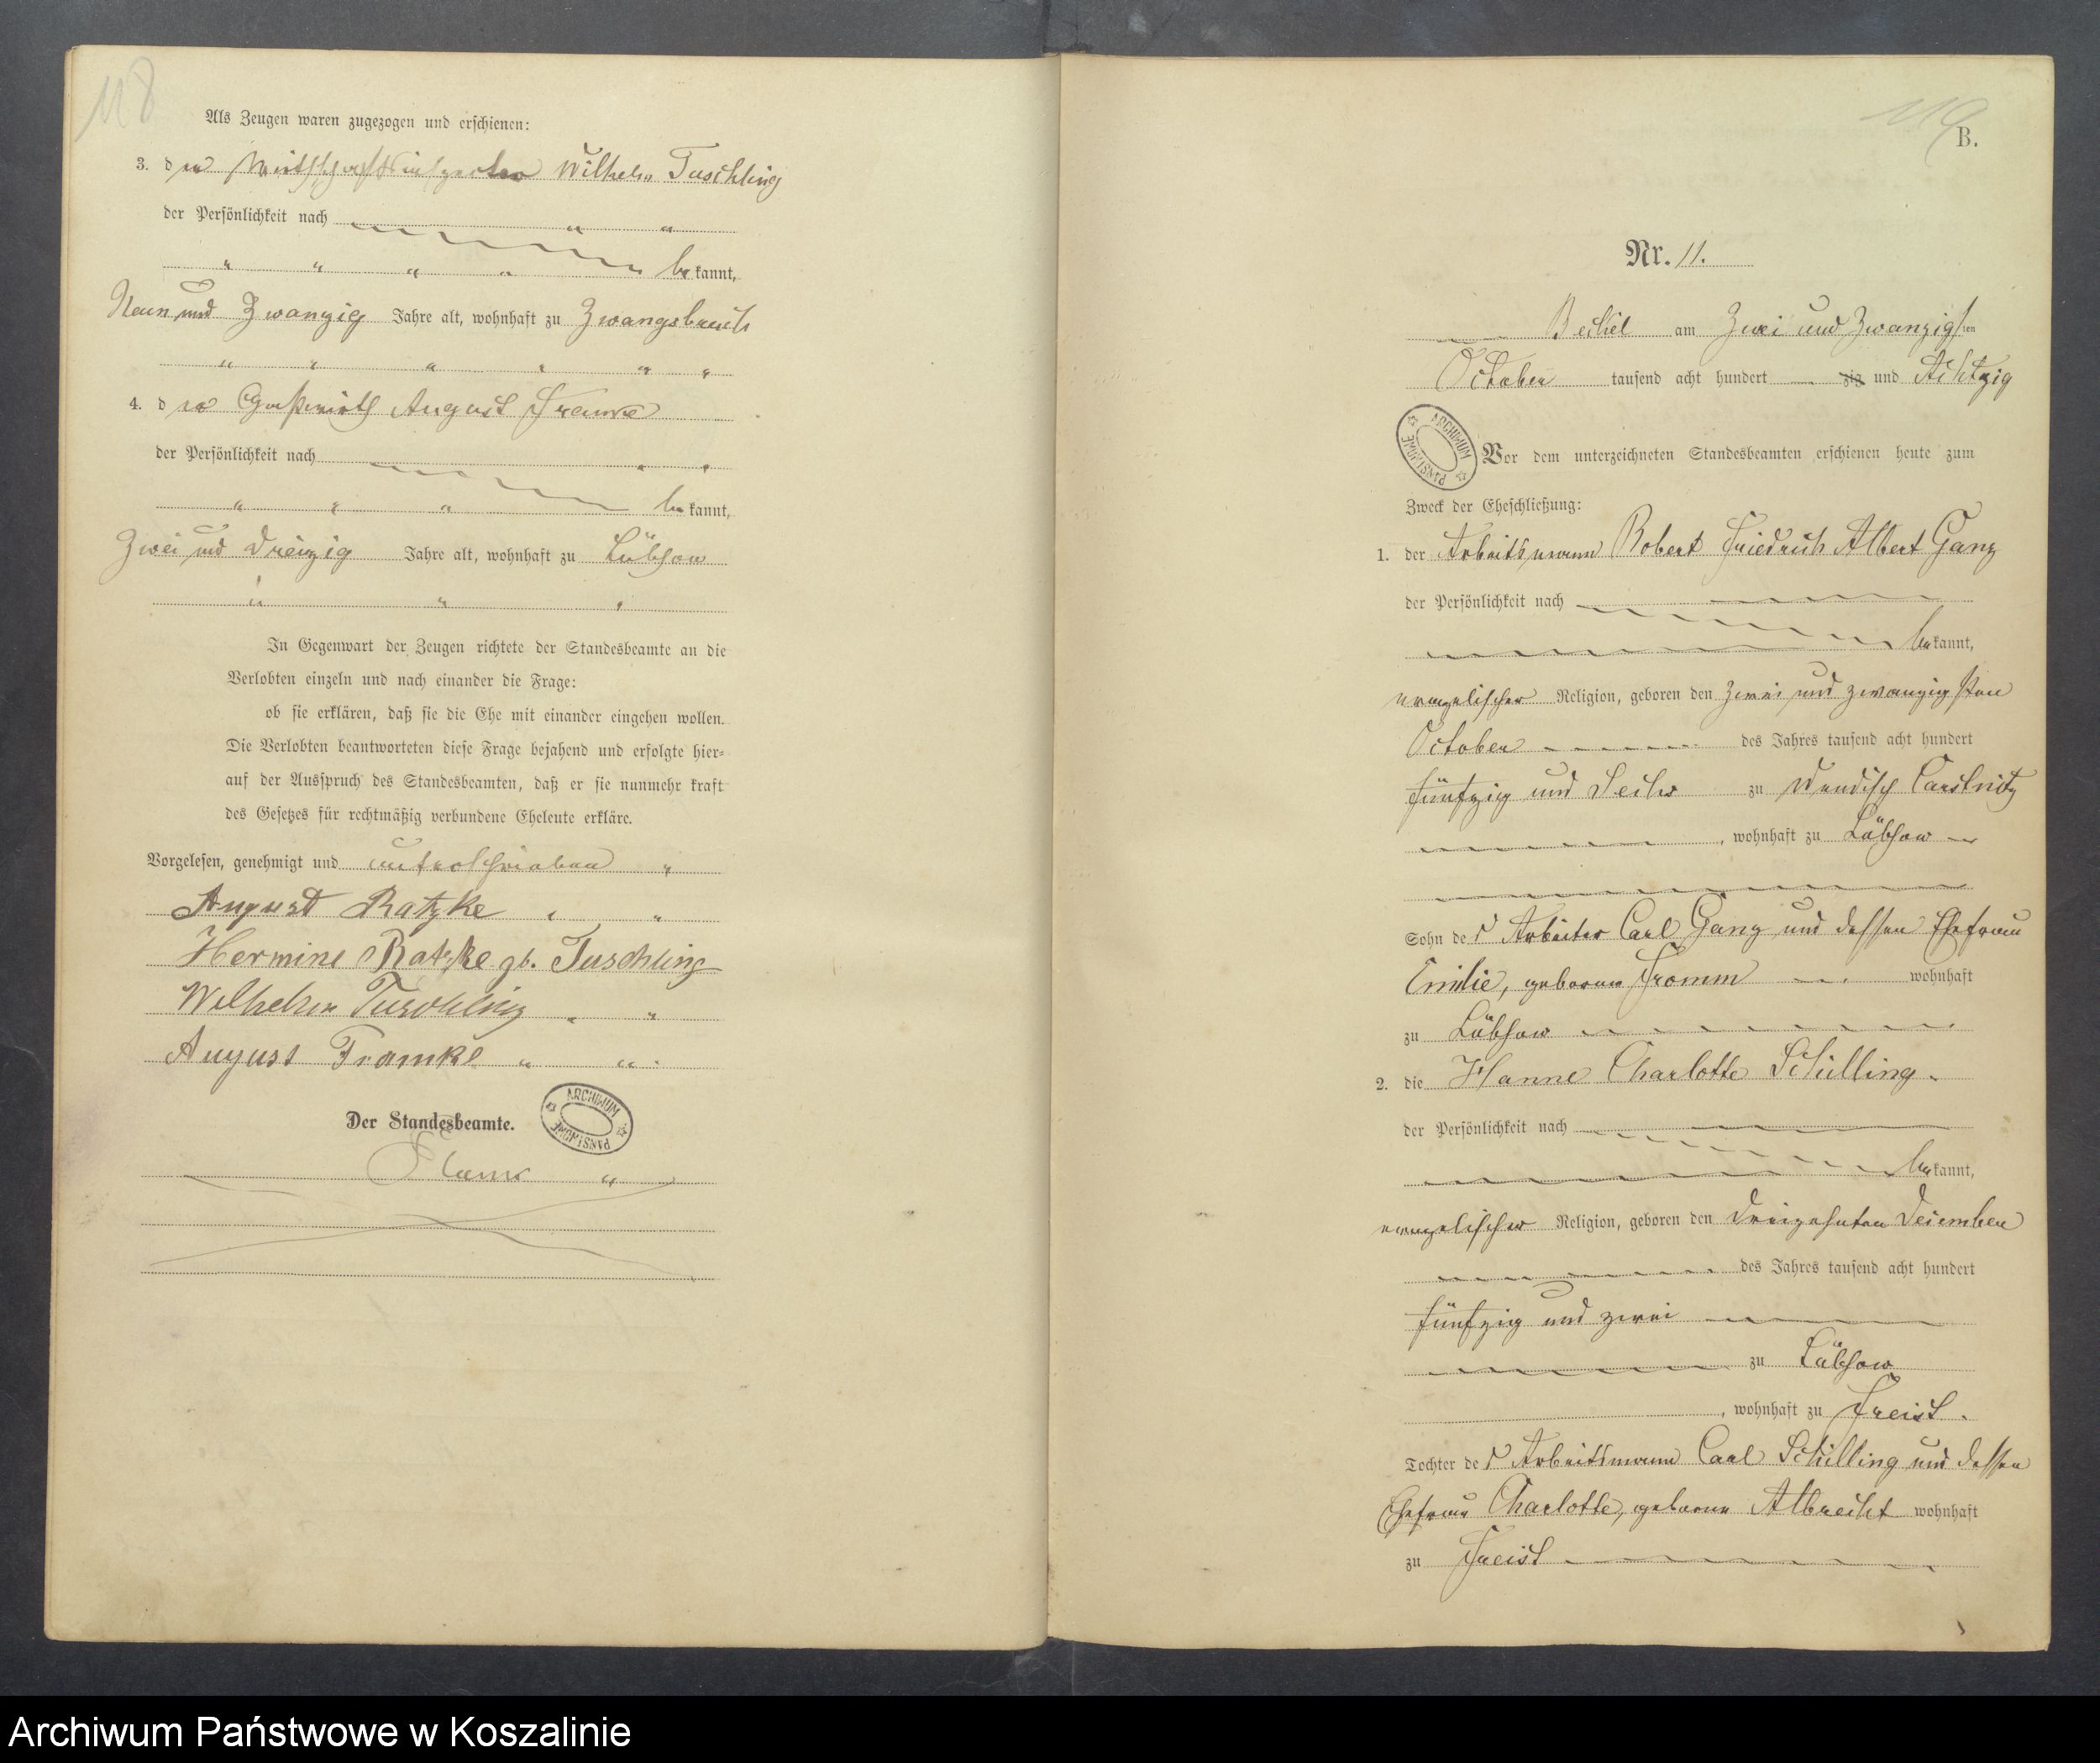 118
Als Zeugen waren zugezogen und erschienen:
3. der Wirthschaftsinspector Wilhelm Tuschling
der Persönlichkeit nach " "
" " " " bekannt,
Neun und Zwanzig Jahre alt, wohnhaft zu Zwangsbruch
" " " " " "
4. der Gastwirth August Franke
der Persönlichkeit nach " "
" " " bekannt,
Zwei und dreizig Jahre alt, wohnhaft zu Lübsow
" " "
In Gegenwart der Zeugen richtete der Standesbeamte an die
Verlobten einzeln und nach einander die Frage:
ob sie erklären, daß sie die Ehe mit einander eingehen wollen.
Die Verlobten beantworteten diese Frage bejahend und erfolgte hier-
auf der Ausspruch des Standesbeamten, daß er sie nunmehr kraft
des Gesetzes für rechtmäßig verbundene Eheleute erkläre.
Vorgelesen, genehmigt und unterschrieben "
August Ratzke " "
Hermine Ratzke gb. Tuschling
Wilhelm Tuschling " "
August Framke " "
Der Standesbeamte.
ARCHIWUM PAŃSTWOWE
"
119
B.
Nr. 11.
Bechel am Zwei und Zwanzigsten
October tausend acht hundert zig und Achtzig
ARCHIWUM PAŃSTWOWE
Vor dem unterzeichneten Standesbeamten erschienen heute zum
Zweck der Eheschließung:
1. der Arbeitsmann Robert Friedrich Albert Ganz
der Persönlichkeit nach
bekannt,
evangelischer Religion, geboren den zwei und zwanzigsten
October des Jahres tausend acht hundert
fünfzig und Sechs zu Wendisch Carstnitz
, wohnhaft zu Lübsow
Sohn des Arbeiter Carl Ganz und dessen Ehefrau
Emilie, geborene Fromm wohnhaft
zu Lübsow
2. die Hanne Charlotte Schilling
der Persönlichkeit nach
bekannt,
evangelischer Religion, geboren den dreizehnten December
des Jahres tausend acht hundert
fünfzig und zwei
zu Lübsow
, wohnhaft zu Freist.
Tochter des Arbeitsmann Carl Schilling und dessen
Ehefrau Charlotte, geborne Albrecht wohnhaft
zu Freist
Archiwum Państwowe w Koszalinie